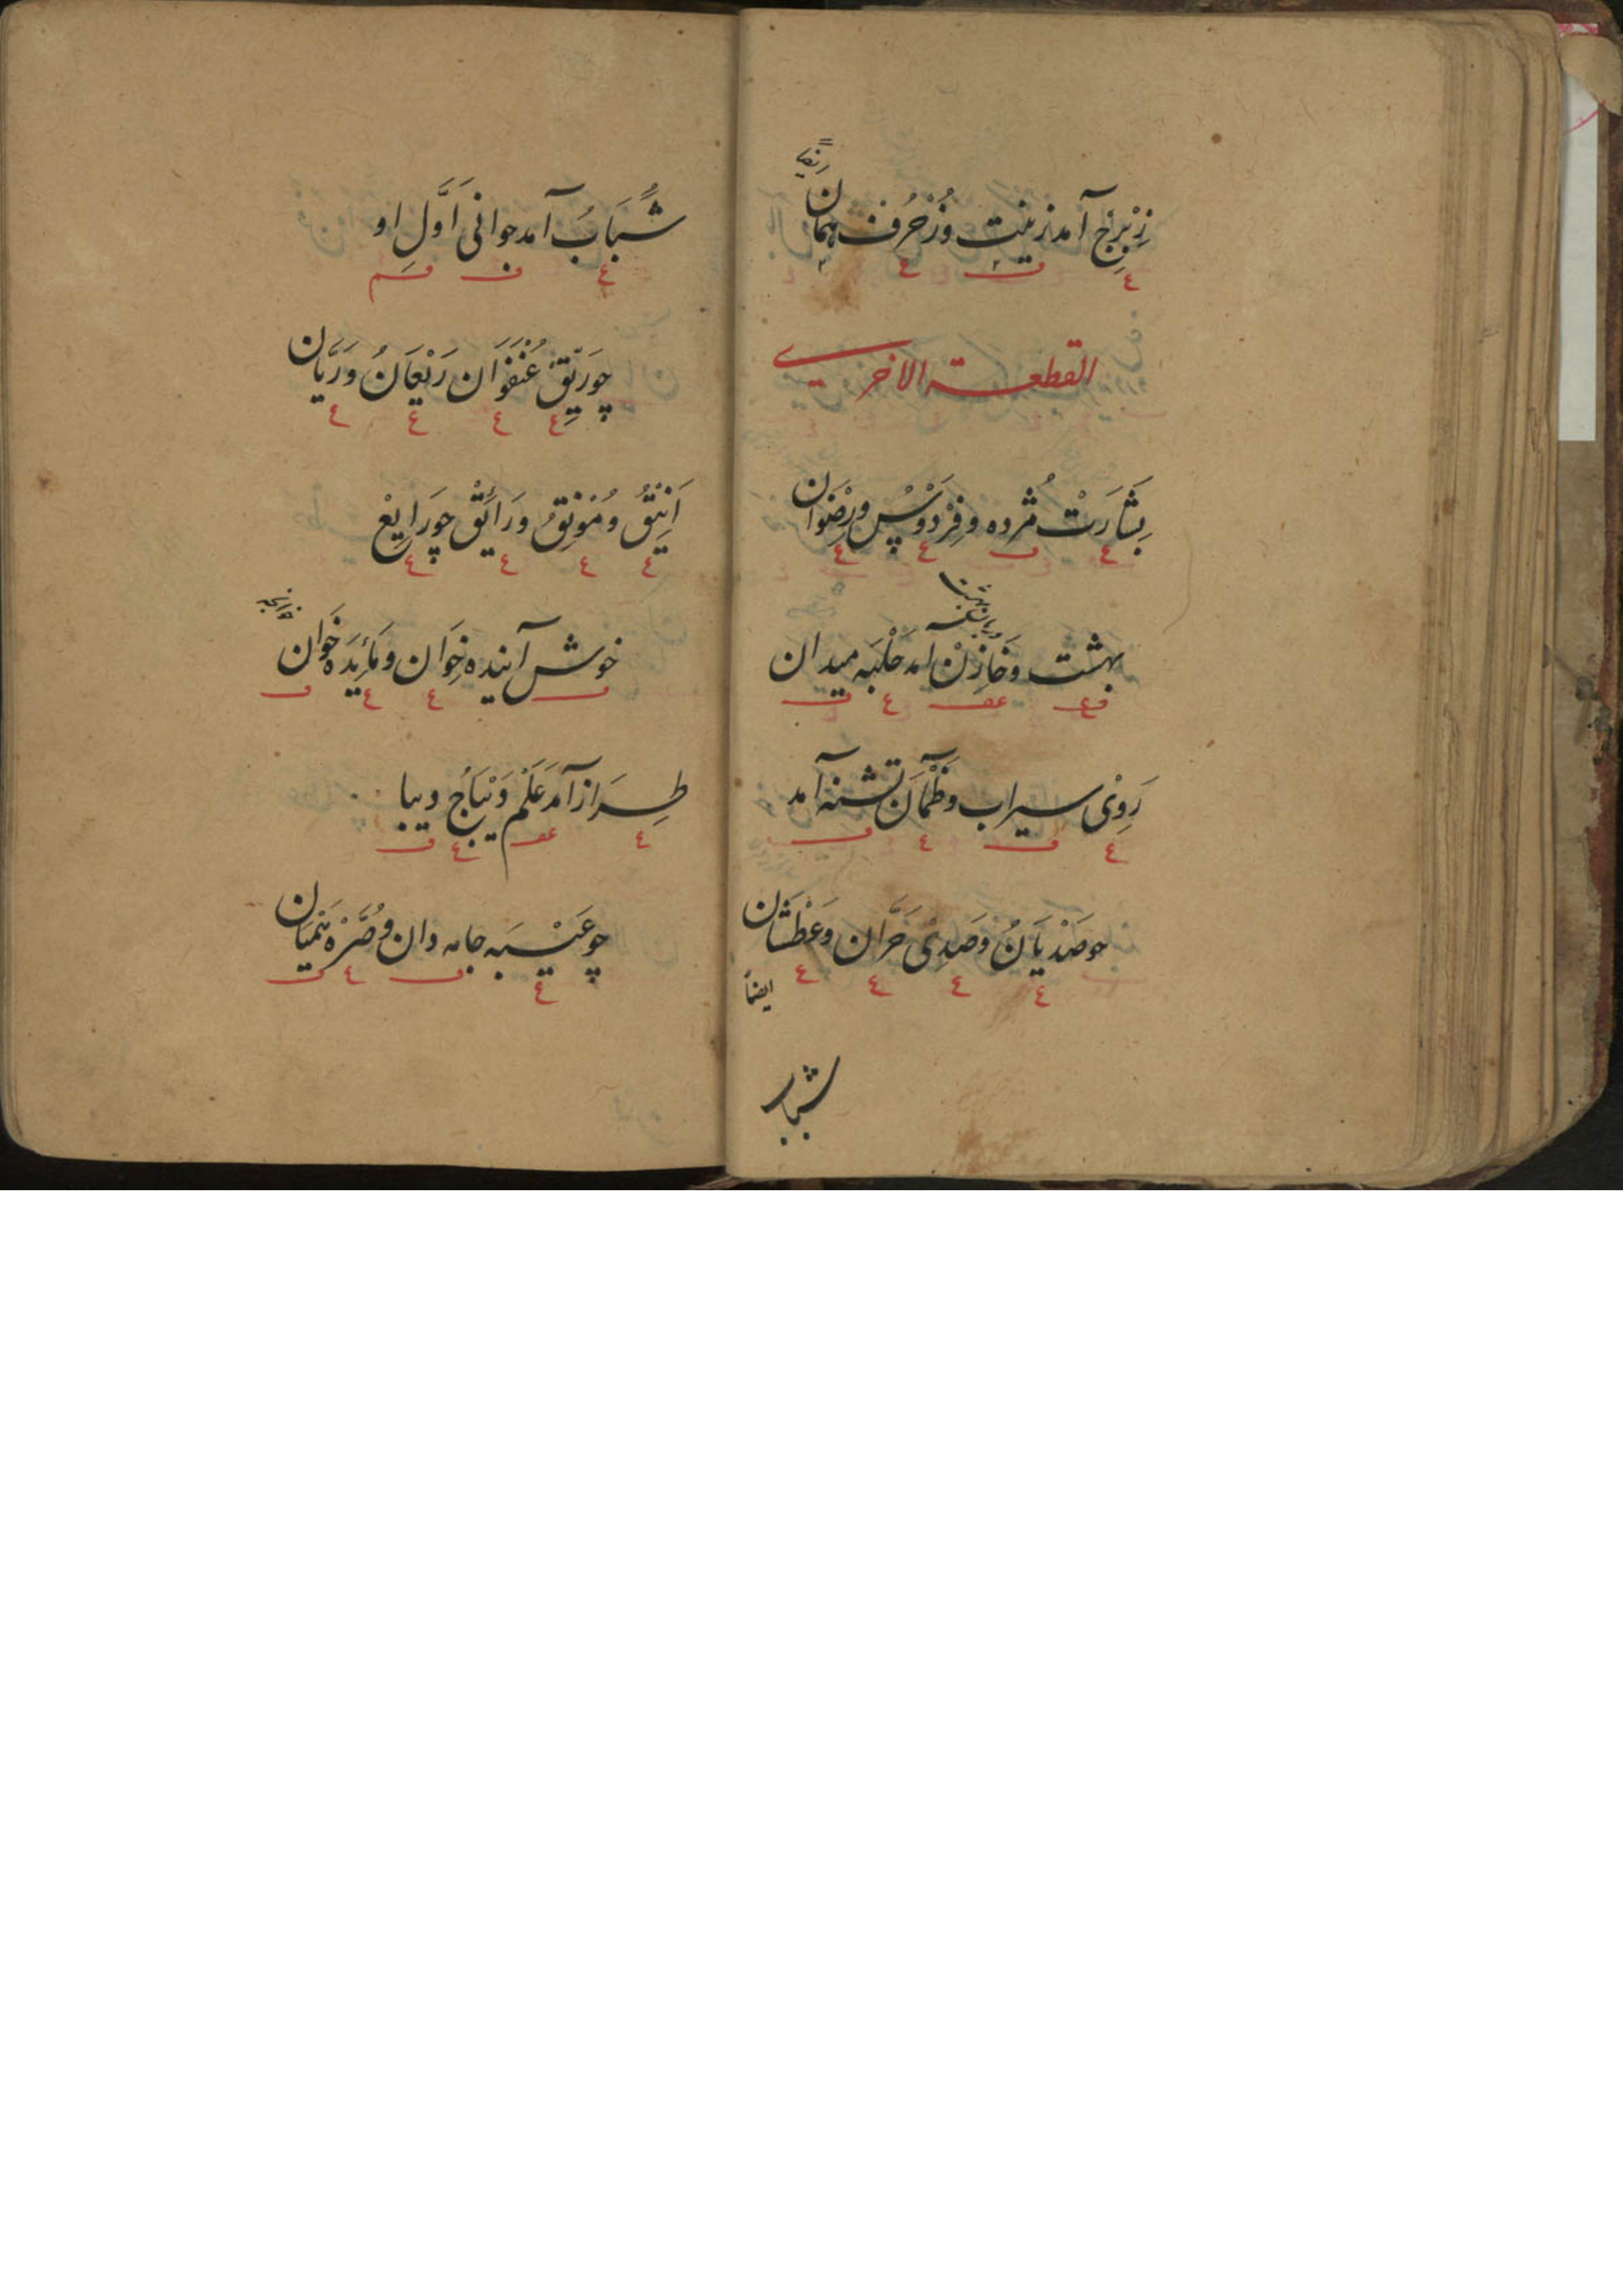 زِبْرِجْ آمد زینت وزُخْرُف همان
القطعـة الاخرى
بِشَارَتْ مُژده وفِرْدَوْسْ ورِضْوان
بهشت وخَازِنْ آمد حَلْبَه میدان
رَوِىْ سیراب وظَمْآن تشنه آمد
چو صَدْیَانُ وصَدِىْ حَرَّان وعَطْشَان
ایضاً
شباب
شَبَابُ آمد جوانى اَوَّلِ او
چو رَیِّقْ عُنْفُوَان رَیْعَانُ ورَیَّان
اَنِیْقُ ومُوْنِقُ ورَائِقْ چو رَایِعْ
خوش آینده خِوَان ومَائِدَه خَوان
طِرَاز آمد عَلَمْ دَیْبَاجْ دیبا
چو عَیْبَه جامه دان وصُرَّه هَمْیَان